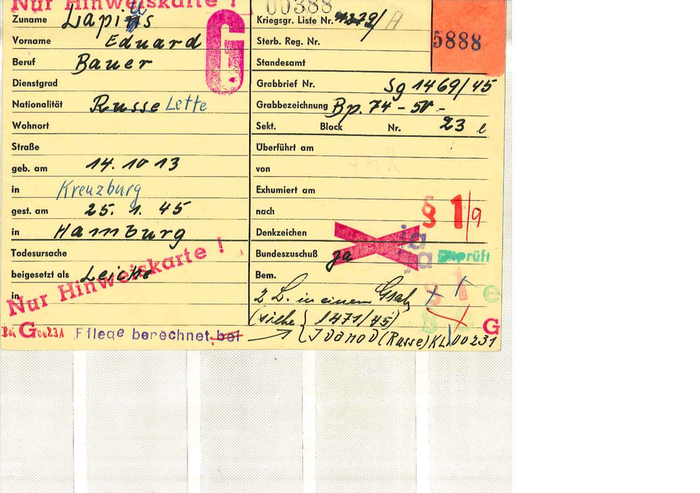 Nur Hinweiskarte !
Zuname Lapins
Vorname Eduard
Beruf Bauer
Dienstgrad
Nationalität Russe Lette
Wohnort
Straße
geb. am 14. 10 13
in Kreuzburg
gest. am 25. 1. 45
in Hamburg
Todesursache
beigesetzt als Leiche
in
Nur Hinweiskarte !
G
Pflege berechnet bei
G
00388
Kriegsgr. Liste Nr. 1379/A
Sterb. Reg. Nr.
5888
Standesamt
Grabbrief Nr. Sg 1469/45
Grabbezeichnung Bp. 74 - 50 -
Sekt. Block Nr. 23 e
Überführt am
von
Exhumiert am
nach
§ 1/9
Denkzeichen
Bundeszuschuß ja
geprüft
Bem.
2 L. in einem Grab
(siehe 1471/45)
G
Ivanov (Russe) KL. 00231